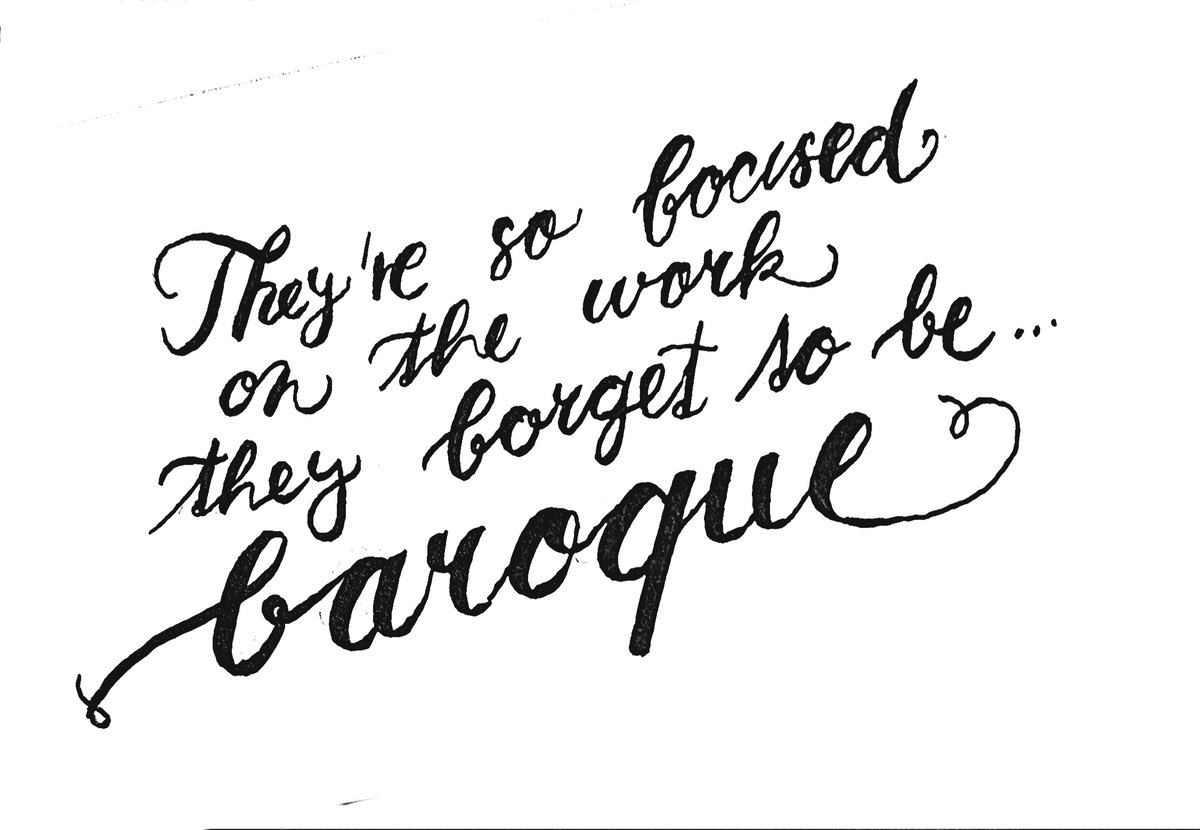 They're so focused
on the work
they forget so be...
baroque